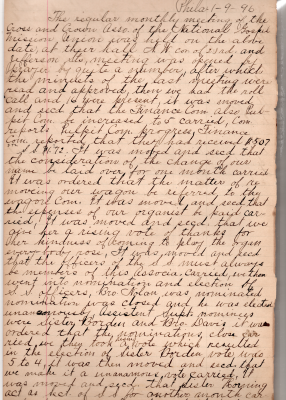 Phila 1-9-96
The regular monthly meeting of the
Cross and Crown Asso. of the National Gospel
Mission Union was held on the above
date, at their hall N.W. cor of 22nd and
Jefferson Sts, meeting was opened by
prayer by quite a number, after which
the minutes of the last meeting were
read and approved, then we had the roll
call and were present, it was moved
and secd that the Finance Com. also
Com. be increased to 5 carried, Com
reports, helpet Com. progress, Finance
Com. reported that they had received
It was moved and secd that
the consideration of the change of our
name be laid over for one month carried
it was ordered that the matter of re
moving our wagon be referred to the
wagon Com. It was moved, and secd that
the expenses of our organist be paid car-
ried, it was moved and secd. that we
give her a rising vote of thanks for
her kindness of coming to play the organ
everybody rose, it was moved and secd
that the officers of the must always
be members of this Associa. carried, we then
went into nomination and election of
officers, Bro was nominated
nomination was closed and he was elected
unanimously, Assistent Supt. nominees
were Sister Borden and Bro Davis it was
ordered that the nominations close car-
ried, we then took a vote which resulted
in the election of Sister Borden, vote was
5 to 4, it was then moved and secd that
we make it a unanamous vote carried, it
was moved and secd that Sister
act as for another month car